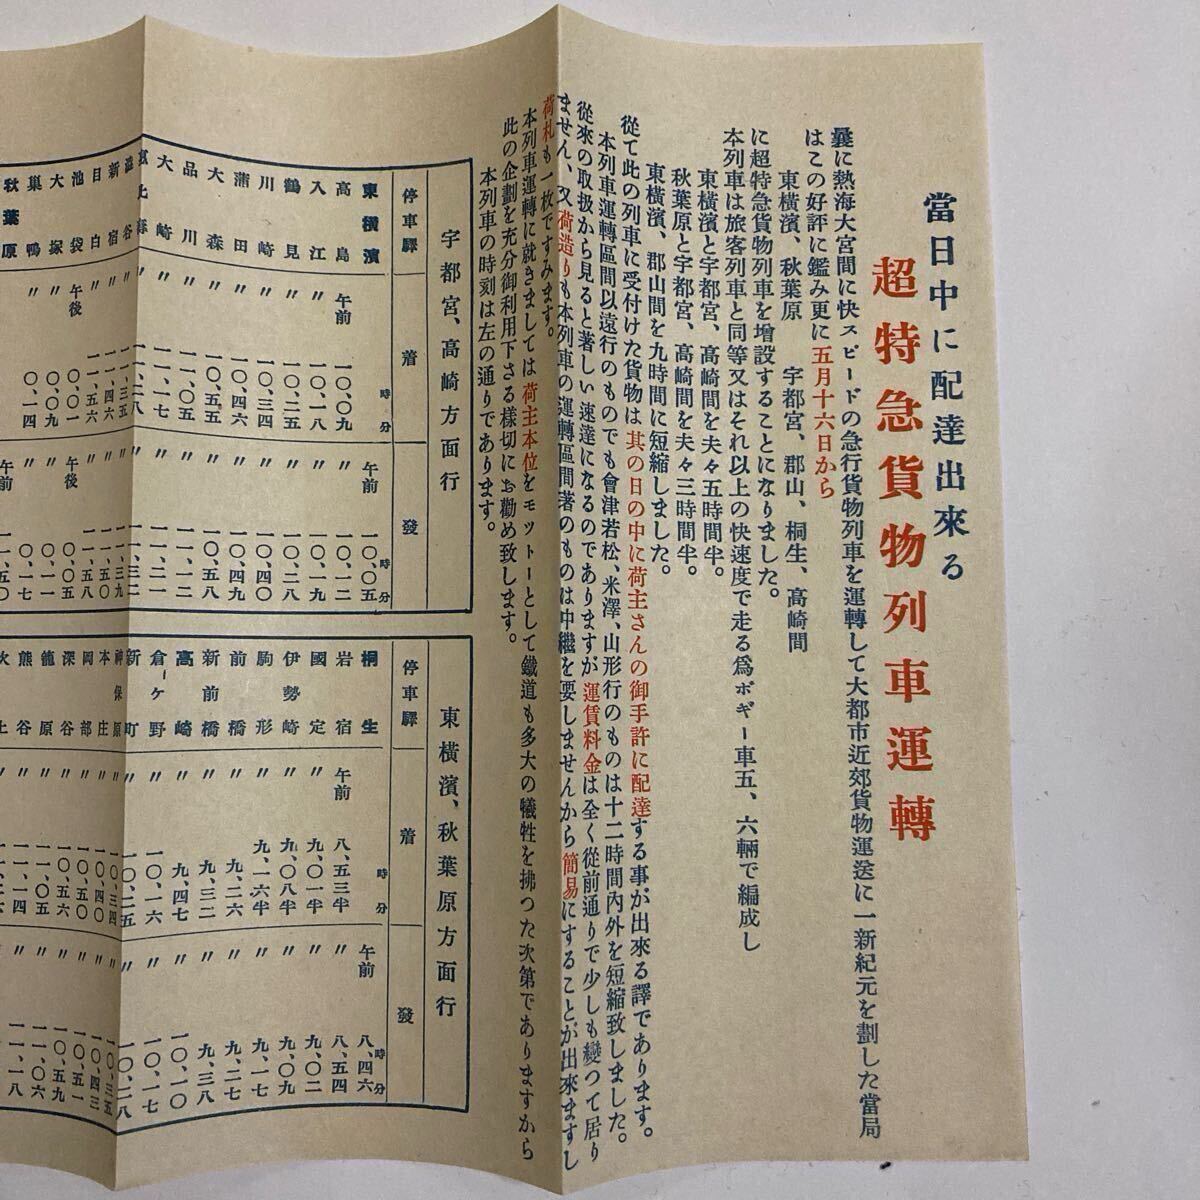 當日中に配達出來る
超特急貨物列車運轉
曩に熱海大宮間に快スピードの急行貨物列車を運轉して大都市近郊貨物運送に一新紀元を劃した當局
はこの好評に鑑み更に五月十六日から
東橫濱、秋葉原　宇都宮、郡山、桐生、高崎間
に超特急貨物列車を增設することになりました。
本列車は旅客列車と同等又はそれ以上の快速度で走る爲ボギー車五、六輛で編成し
東橫濱と宇都宮、高崎間を夫々五時間半。
秋葉原と宇都宮、高崎間を夫々三時間半。
東橫濱、郡山間を九時間に短縮しました。
從て此の列車に受付けた貨物は其の日の中に荷主さんの御手許に配達する事が出來る譯であります。
本列車運轉區間以遠行のものでも會津若松、米澤、山形行のものは十二時間內外を短縮致しました。
從來の取扱から見ると著しい速達になるのでありますが運賃料金は全く從前通りで少しも變つて居り
ません、又荷造りも本列車の運轉區間著のものは中繼を要しませんから簡易にすることが出來ますし
荷札も一枚ですみます。
本列車運轉に就きましては荷主本位をモットーとして鐵道も多大の犧牲を拂つた次第でありますから
此の企劃を充分御利用下さる樣切にお勸め致します。
本列車の時刻は左の通りであります。
宇都宮、高崎方面行
停車驛　着　發
東橫濱　午前 一〇、〇五
高島　午前 一〇、〇九　〃 一〇、一二
入江　〃 一〇、一八　〃 一〇、一九
鶴見　〃 一〇、二五　〃 一〇、二八
川崎　〃 一〇、三四　〃 一〇、四〇
蒲田　〃 一〇、四六　〃 一〇、四九
大森　〃 一〇、五五　〃 一〇、五八
品川　〃 一一、〇五　〃 一一、一二
大崎　〃 一一、一七　〃 一一、二二
新宿　〃 一一、四六
目白　〃 一一、五六　〃 一一、五八
池袋　午後 〇、〇一　午後 〇、〇五
大塚　〃 〇、〇九
巢鴨　〃 〇、一四　〃 〇、一七
秋葉原　午前 一一、五〇
東橫濱、秋葉原方面行
停車驛　着　發
桐生　午前 八、四六
岩宿　午前 八、五三半　〃 八、五四
國定　〃 九、〇一半　〃 九、〇二
伊勢崎　〃 九、〇八半　〃 九、〇九
駒形　〃 九、一六半　〃 九、一七
前橋　〃 九、二六　〃 九、二七
新前橋　〃 九、三二　〃 九、三八
高崎　〃 九、四七　〃 一〇、一〇
倉ケ野　〃 一〇、一六　〃 一〇、一七
新町　〃 一〇、二五　〃 一〇、二八
神保原　〃 一〇、三四　〃 一〇、三五
本庄　〃 一〇、四〇　〃 一〇、四三
岡部　〃 一〇、五〇　〃 一〇、五一
深谷　〃 一〇、五六　〃 一〇、五九
籠原　〃 一一、〇五　〃 一一、〇六
熊谷　〃 一一、一四　〃 一一、一八